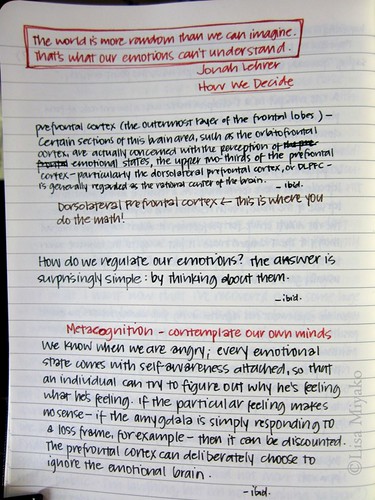 The world is more random than we can imagine.
That's what our emotions can't understand.
Jonah Lehrer
How We Decide
prefrontal cortex (the outermost layer of the frontal lobes) –
Certain sections of this brain area, such as the orbitofrontal
cortex, are actually concerned with the perception of
emotional states, the upper two-thirds of the prefrontal
cortex – particularly the dorsolateral prefrontal cortex, or DLPFC –
is generally regarded as the rational center of the brain. – ibid.
Dorsolateral Prefrontal cortex ← this is where you
do the math!
How do we regulate our emotions? The answer is
surprisingly simple: by thinking about them.
– ibid.
Metacognition – contemplate our own minds
We know when we are angry; every emotional
state comes with self-awareness attached, so that
an individual can try to figure out why he's feeling
what he's feeling. if the particular feeling makes
no sense – if the amygdala is simply responding to
a loss frame, for example – then it can be discounted.
The prefrontal cortex can deliberately choose to
ignore the emotional brain.
– ibid.
©Lisa Miyako